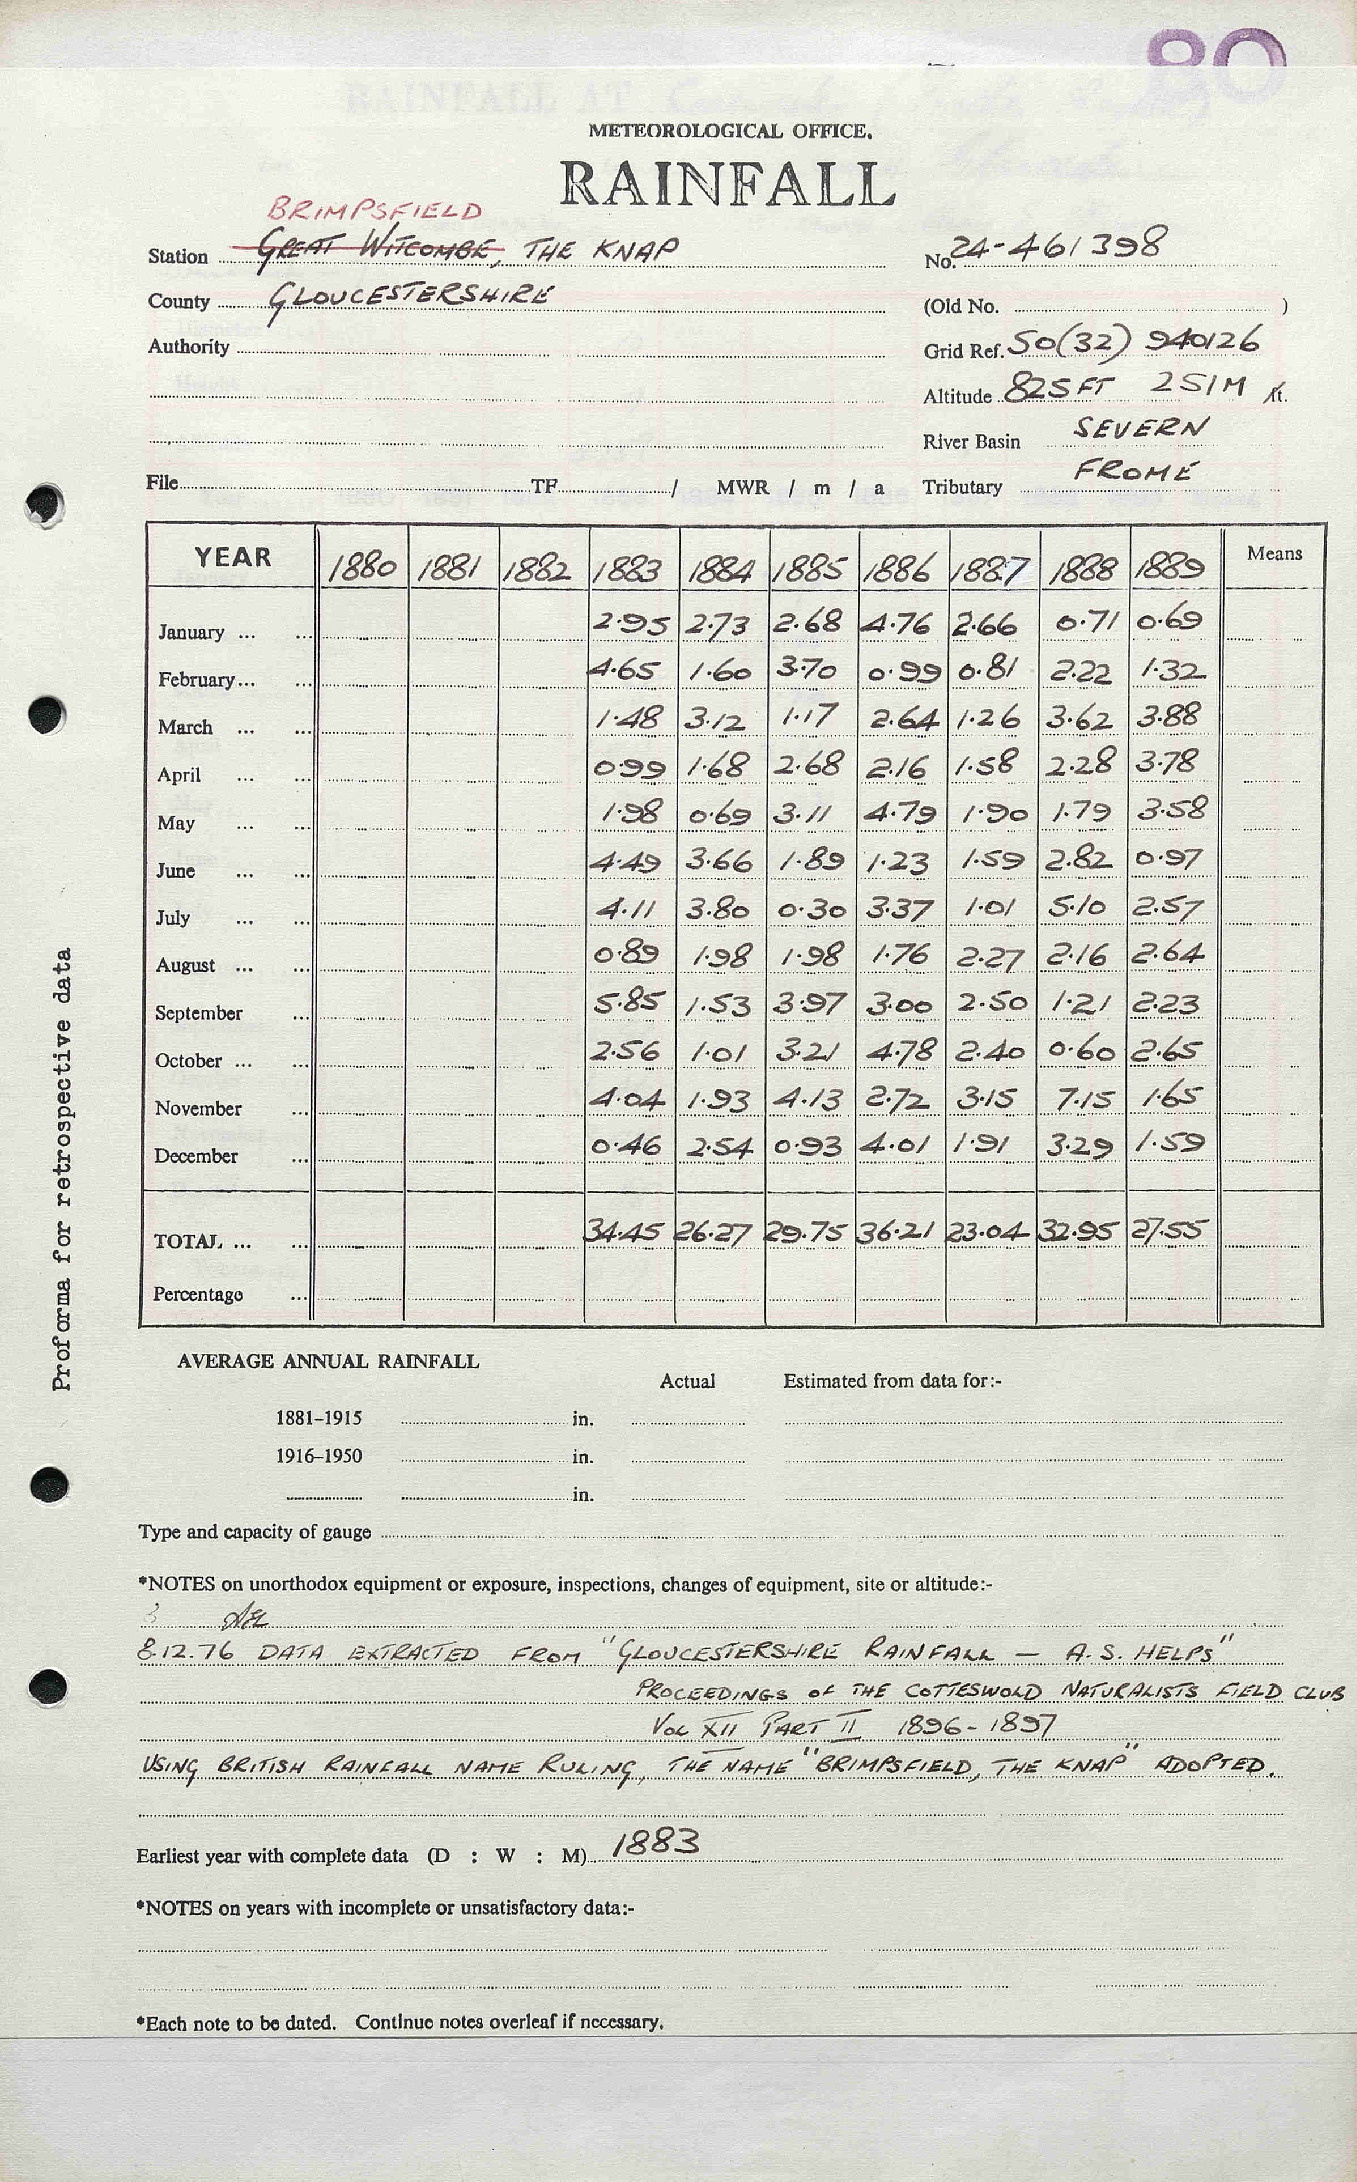 80
METEOROLOGICAL OFFICE.
RAINFALL
BRIMPSFIELD
Station GREAT WITCOMBE, THE KNAP No. 24-461398
County GLOUCESTERSHIRE (Old No. )
Authority Grid Ref. SO(32) 940126
Altitude 825 FT 251M ft.
River Basin SEVERN
File TF / MWR / m / a Tributary FROME
YEAR 1880 1881 1882 1883 1884 1885 1886 1887 1888 1889 Means
January ... ... 2.95 2.73 2.68 4.76 2.66 0.71 0.69
February... ... 4.65 1.60 3.70 0.99 0.81 2.22 1.32
March ... ... 1.48 3.12 1.17 2.64 1.26 3.62 3.88
April ... ... 0.99 1.68 2.68 2.16 1.58 2.28 3.78
May ... ... 1.98 0.69 3.11 4.79 1.90 1.79 3.58
June ... ... 4.49 3.66 1.89 1.23 1.59 2.82 0.97
July ... ... 4.11 3.80 0.30 3.37 1.01 5.10 2.57
August ... ... 0.89 1.98 1.98 1.76 2.27 2.16 2.64
September ... 5.85 1.53 3.97 3.00 2.50 1.21 2.23
October ... ... 2.56 1.01 3.21 4.78 2.40 0.60 2.65
November ... 4.04 1.93 4.13 2.72 3.15 7.15 1.65
December ... 0.46 2.54 0.93 4.01 1.91 3.29 1.59
TOTAL ... ... 34.45 26.27 29.75 36.21 23.04 32.95 27.55
Percentage ...
Proforma for retrospective data
AVERAGE ANNUAL RAINFALL
Actual Estimated from data for:-
1881–1915 in.
1916–1950 in.
in.
Type and capacity of gauge
*NOTES on unorthodox equipment or exposure, inspections, changes of equipment, site or altitude:-
8.12.76 DATA EXTRACTED FROM "GLOUCESTERSHIRE RAINFALL — A.S. HELPS"
PROCEEDINGS OF THE COTTESWOLD NATURALISTS FIELD CLUB
VOL XII PART II 1896-1897
USING BRITISH RAINFALL NAME RULING, THE NAME "BRIMPSFIELD, THE KNAP" ADOPTED.
Earliest year with complete data (D : W : M) 1883
*NOTES on years with incomplete or unsatisfactory data:-
*Each note to be dated. Continue notes overleaf if necessary.